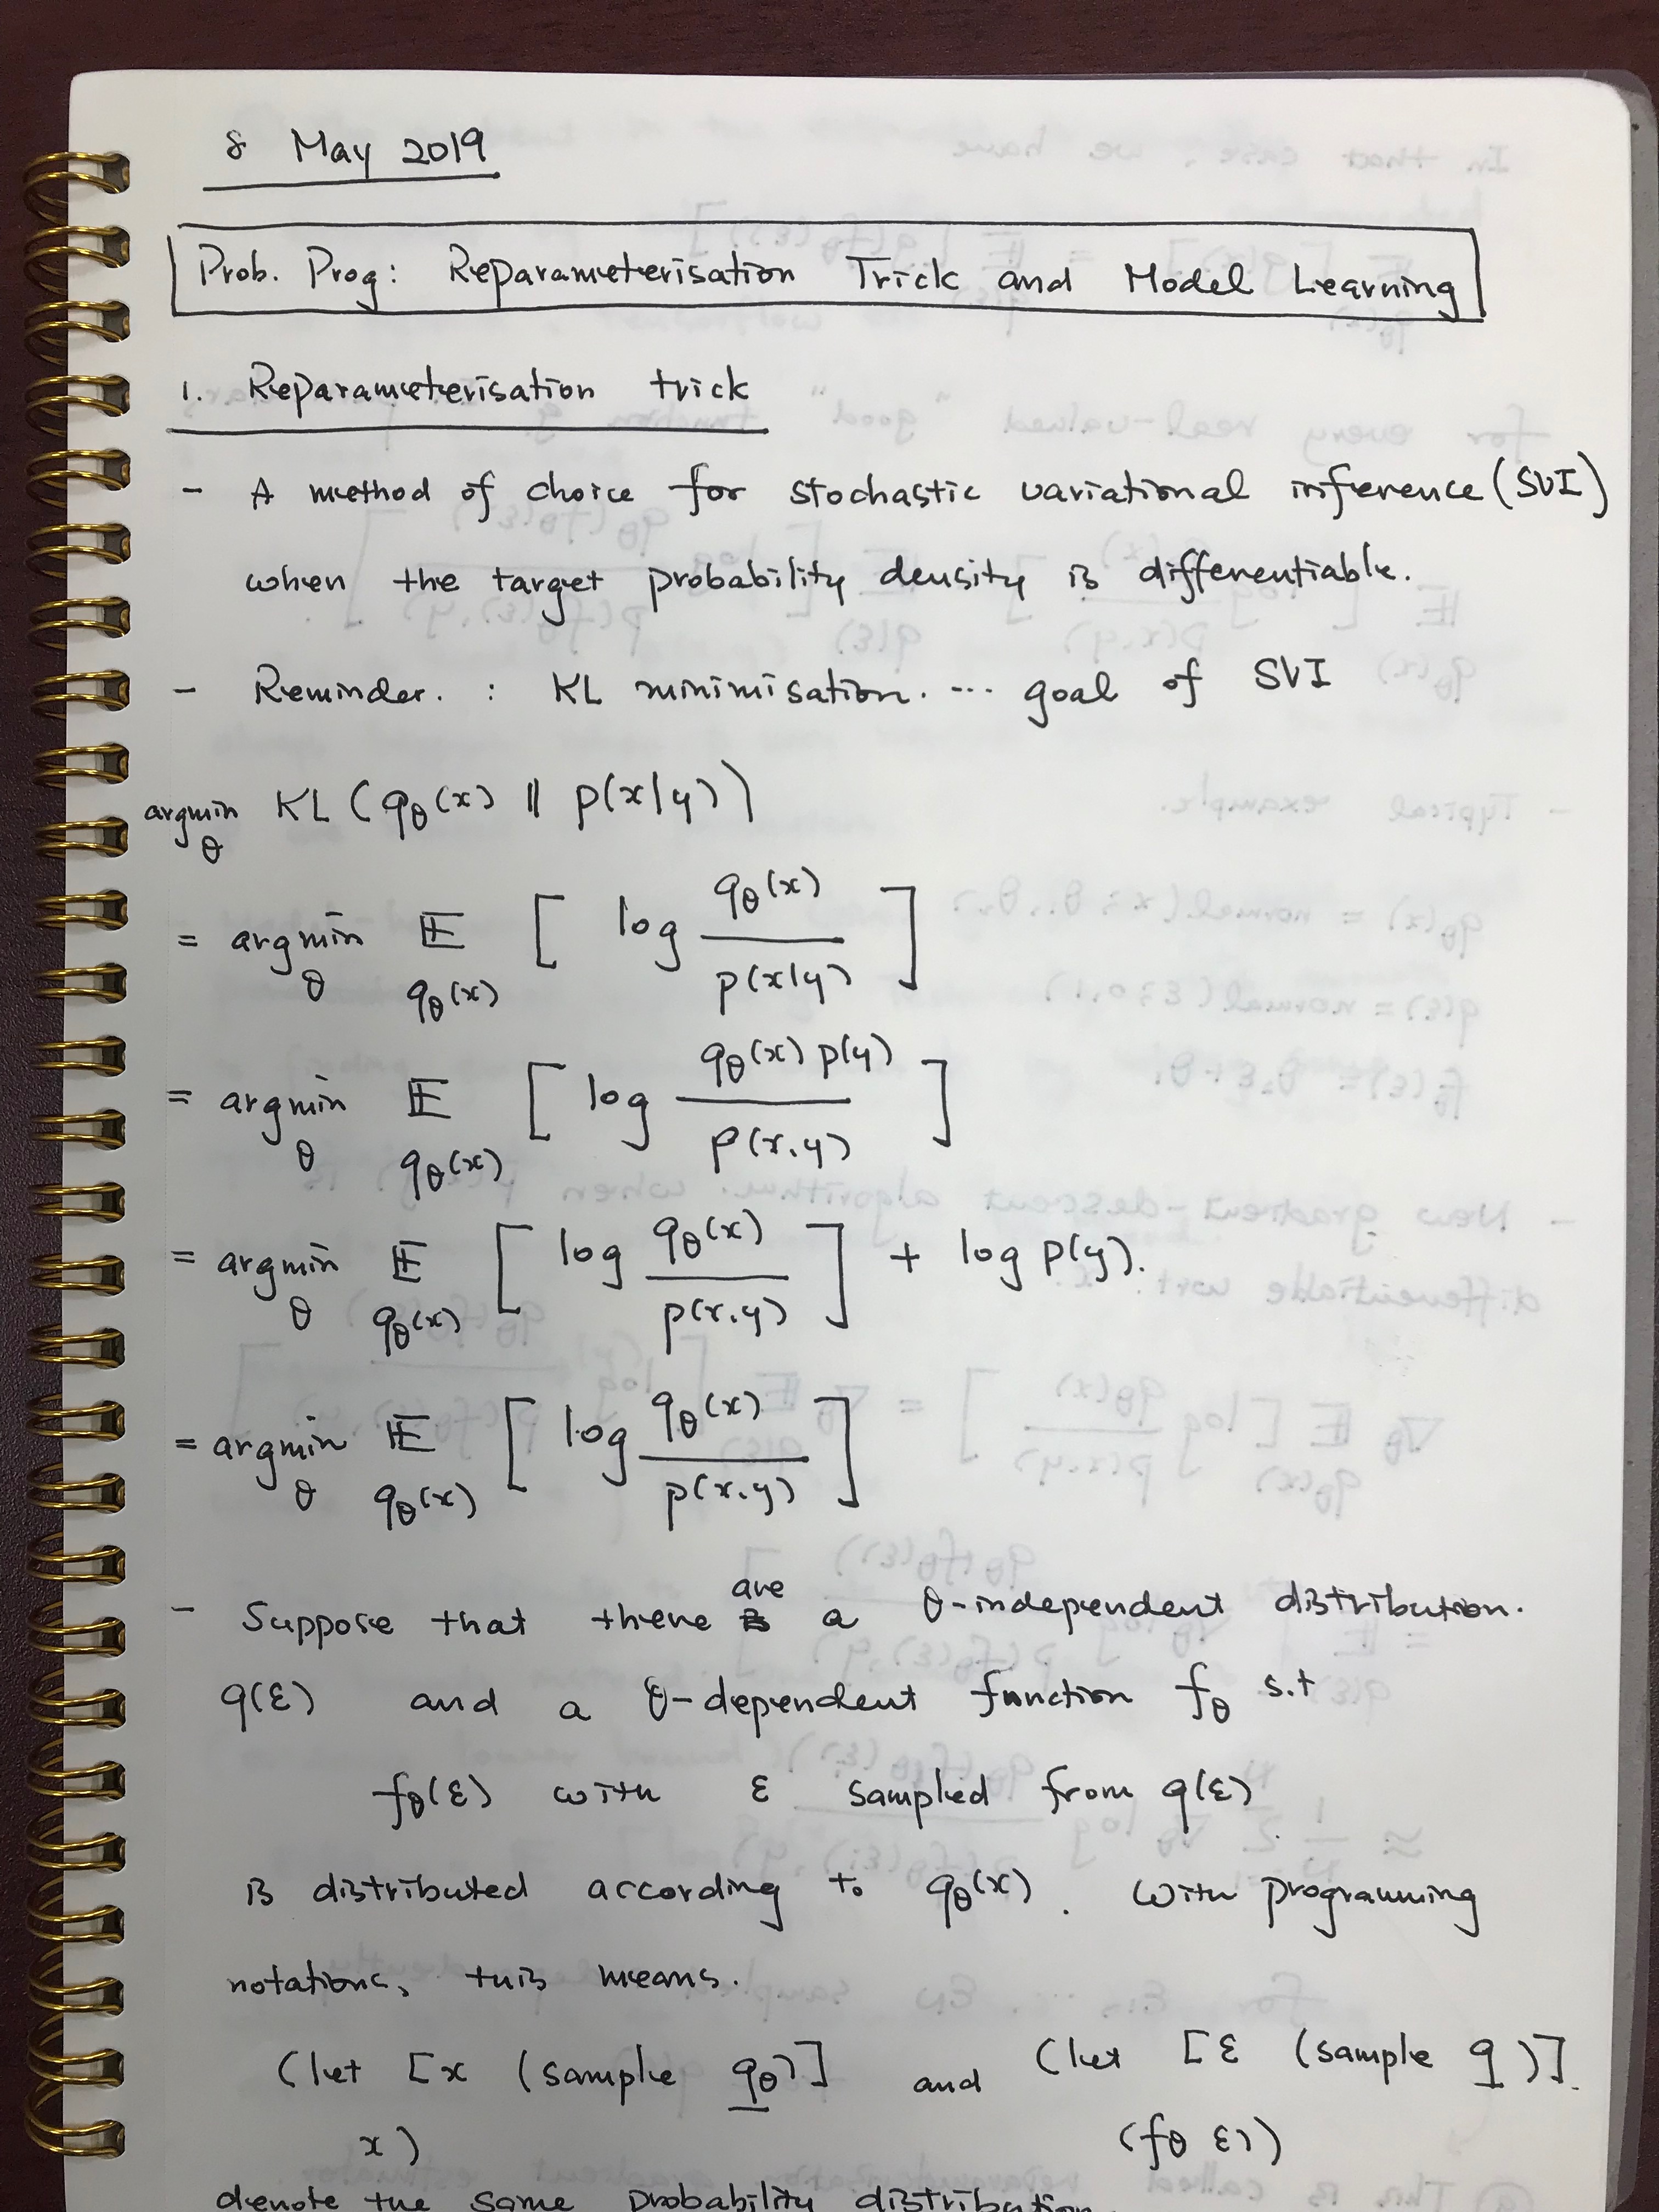 8 May 2019
Prob. Prog: Reparameterisation Trick and Model Learning
1. Reparameterisation trick
- A method of choice for stochastic variational inference (SVI)
when the target probability density is differentiable.
- Reminder. : KL minimisation. ... goal of SVI
argmin_θ KL ( q_θ(x) || p(x|y) )
= argmin_θ 𝔼_{q_θ(x)} [ log q_θ(x) / p(x|y) ]
= argmin_θ 𝔼_{q_θ(x)} [ log q_θ(x) p(y) / p(x,y) ]
= argmin_θ 𝔼_{q_θ(x)} [ log q_θ(x) / p(x,y) ] + log p(y).
= argmin_θ 𝔼_{q_θ(x)} [ log q_θ(x) / p(x,y) ]
- Suppose that there are a θ-independent distribution.
q(ε) and a θ-dependent function f_θ s.t
f_θ(ε) with ε sampled from q(ε)
is distributed according to q_θ(x). With programming
notations, this means.
(let [x (sample q_θ)] and (let [ε (sample q)].
x) (f_θ ε))
denote the same probability distribution.